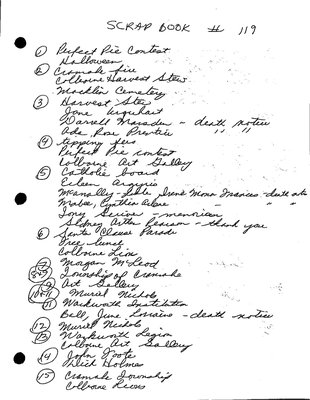 SCRAP BOOK # 119
1 Perfect Pie Contest
Halloween
2 Cramahe fire
Colborne Harvest Stew
Mocklin Cemetery
3 Harvest Stew
Jane Urquhart
Darrell Marsden - death notice
Ade, Rose Prentice " "
4 tipping fees
Perfect Pie contest
Colborne Art Gallery
5 Catholic board
Eileen
Irene Mona Frances - death notice
Mabee, Cynthia - " "
Tony - memoriam
Sidney Arthur Pearson - thank you
6 Santa Clause Parade
Free lunch
Colborne Lion
7 Morgan McLeod
8+9 Township of Cramahe
9 Art Gallery
10+11 Muriel Nichols
11 Warkworth Institution
Bell, June Lorraine - death notice
12 Muriel Nichols
13 Warkworth Legion
Colborne Art Gallery
14 John Foote
Holmes
15 Cramahe Township
Colborne Lions